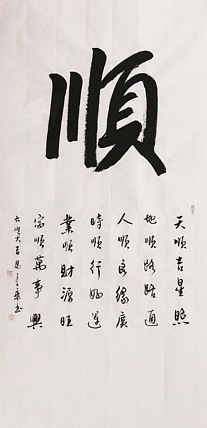 順
天順吉星照
地順路路通
人順良緣廣
時順行好運
業順財源旺
家順萬事興
大順大吉